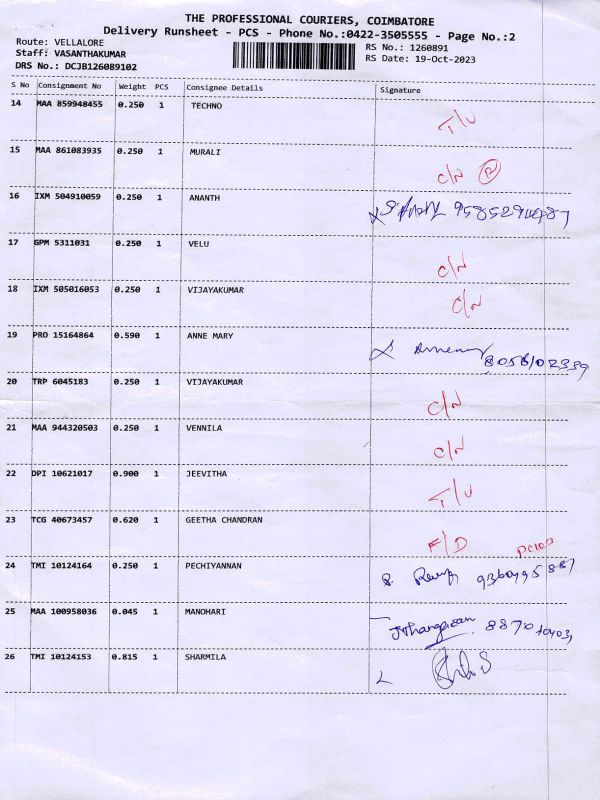 THE PROFESSIONAL COURIERS, COIMBATORE
Delivery Runsheet - PCS - Phone No.:0422-3505555 - Page No.:2
Route: VELLALORE
Staff: VASANTHAKUMAR
DRS No.: DCJB126089102
RS No.: 1260891
RS Date: 19-Oct-2023
S No Consignment No Weight PCS Consignee Details Signature
14 MAA 859948455 0.250 1 TECHNO T/U
15 MAA 861083935 0.250 1 MURALI C/N R
16 IXM 504910059 0.250 1 ANANTH
17 GPM 5311031 0.250 1 VELU C/N
18 IXM 505016053 0.250 1 VIJAYAKUMAR C/N
19 PRO 15164864 0.590 1 ANNE MARY
20 TRP 6045183 0.250 1 VIJAYAKUMAR C/N
21 MAA 944320503 0.250 1 VENNILA C/N
22 DPI 10621017 0.900 1 JEEVITHA T/U
23 TCG 40673457 0.620 1 GEETHA CHANDRAN F/D
24 TMI 10124164 0.250 1 PECHIYANNAN
25 MAA 100958036 0.045 1 MANOHARI
26 TMI 10124153 0.815 1 SHARMILA